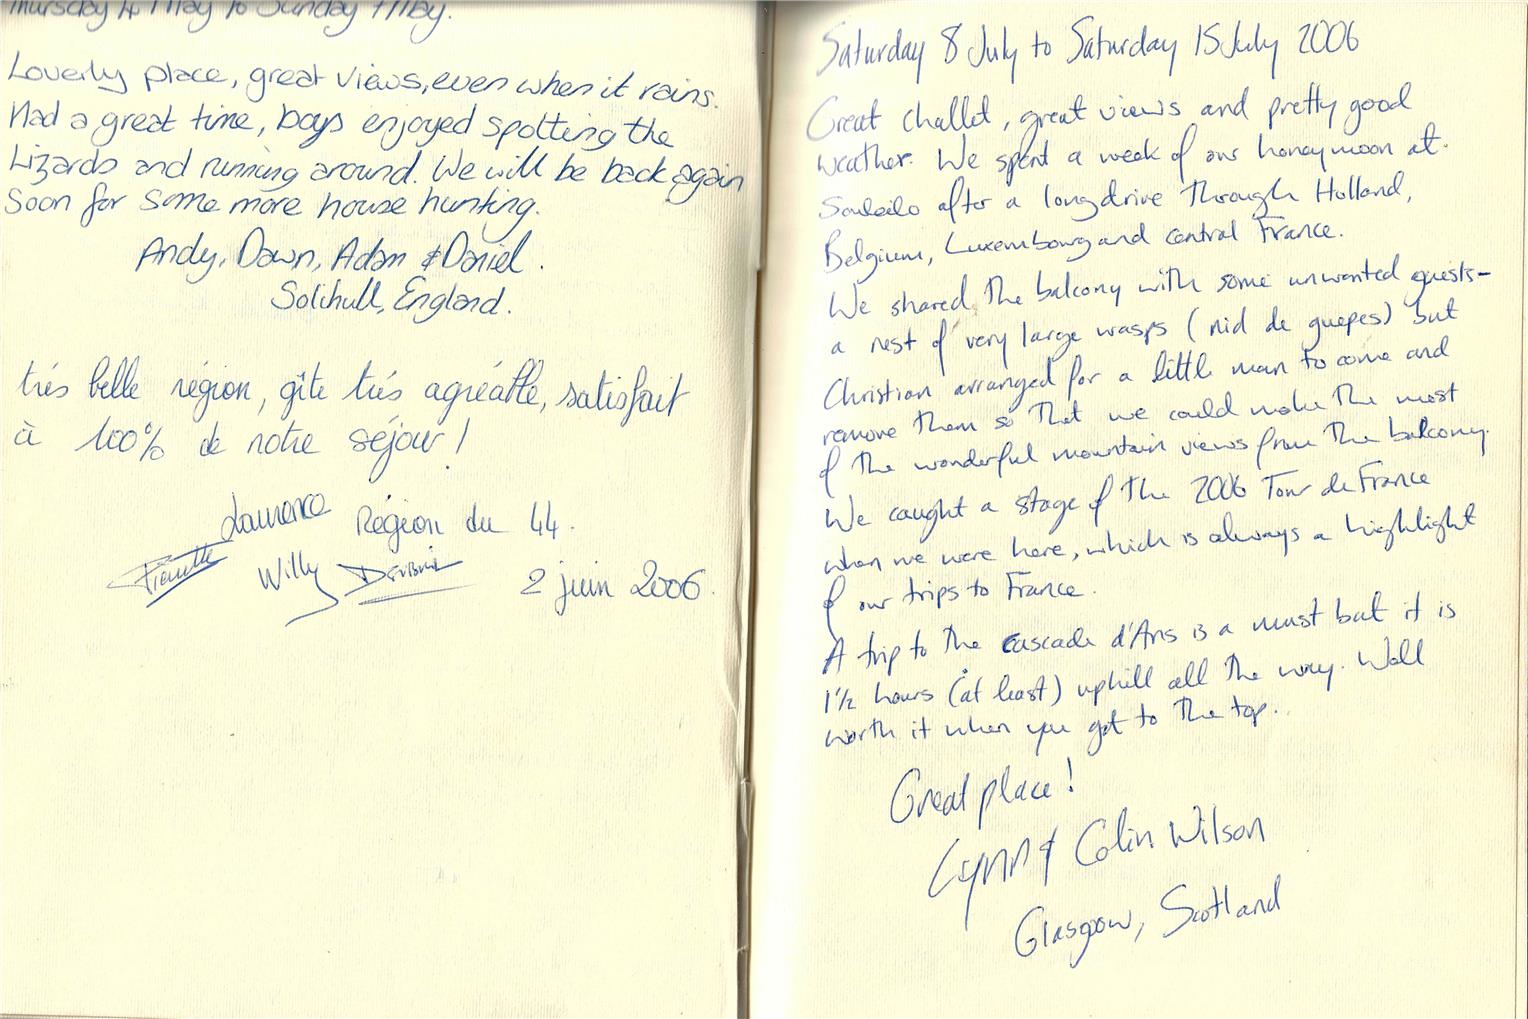 Thursday 4 May to Sunday 7 May.
Loverly place, great views, even when it rains.
Had a great time, boys enjoyed spotting the
Lizards and running around. We will be back again
Soon for some more house hunting.
Andy, Dawn, Adam & Daniel.
Solihull, England.
trés belle région, gîte trés agréable, satisfait
à 100% de notre séjour!
Laurence Région du 44.
Willy
2 juin 2006.
Saturday 8 July to Saturday 15 July 2006
Great challet, great views and pretty good
weather. We spent a week of our honeymoon at
Souleilo after a long drive through Holland,
Belgium, Luxembourg and central France.
We shared the balcony with some unwanted guests -
a nest of very large wasps (nid de guepes) but
Christian arranged for a little man to come and
remove them so that we could make the most
of the wonderful mountain views from the balcony.
We caught a stage of the 2006 Tour de France
when we were here, which is always a highlight
of our trips to France.
A trip to the cascade d'Ars is a must but it is
1½ hours (at least) uphill all the way. Well
worth it when you get to the top.
Great place!
Lynn & Colin Wilson
Glasgow, Scotland